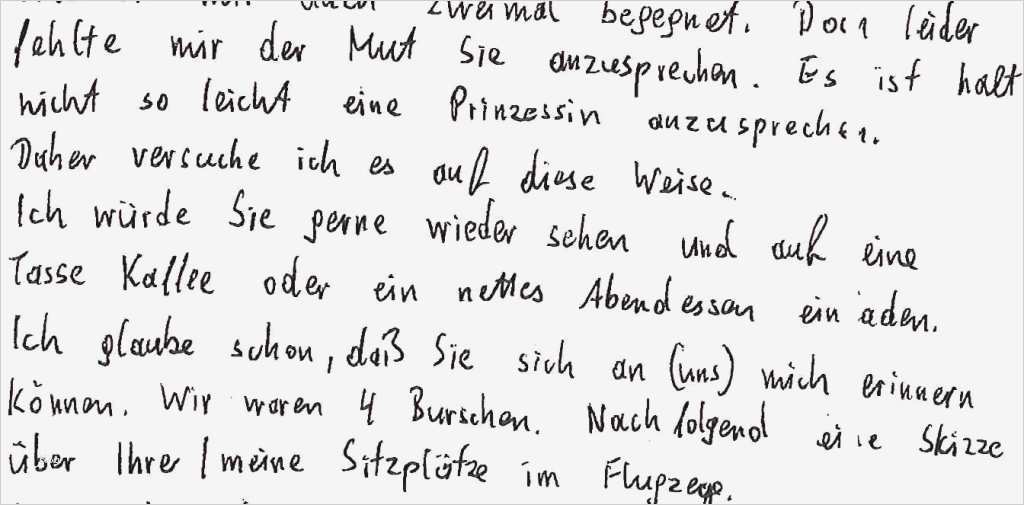 zweimal begegnet. Doch leider
fehlte mir der Mut Sie anzusprechen. Es ist halt
nicht so leicht eine Prinzessin anzusprechen.
Daher versuche ich es auf diese Weise.
Ich würde Sie gerne wieder sehen und auf eine
Tasse Kaffee oder ein nettes Abendessen einladen.
Ich glaube schon, daß Sie sich an (uns) mich erinnern
können. Wir waren 4 Burschen. Nachfolgend eine Skizze
über Ihre / meine Sitzplätze im Flugzeug.